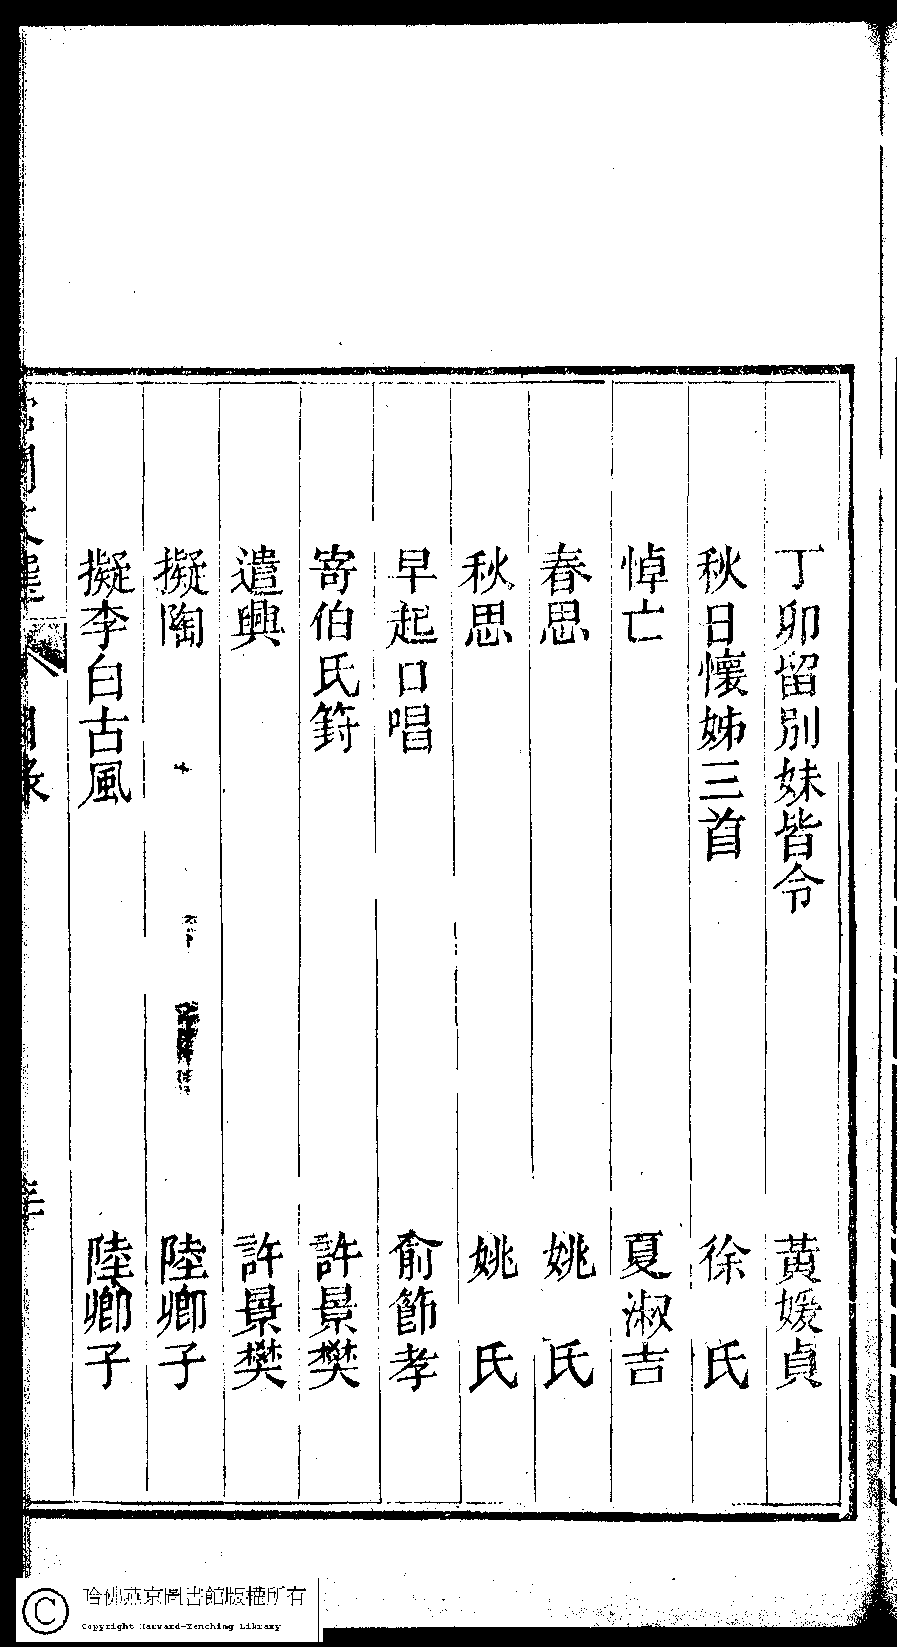 丁卯留別妹皆令 黃媛貞
秋日懷姊三首 徐氏
悼亡 夏淑吉
春思 姚氏
秋思 姚氏
早起口唱 俞節孝
寄伯氏篈 許景樊
遣興 許景樊
擬陶 陸卿子
擬李白古風 陸卿子
目錄
哈佛燕京圖書館版權所有
Copyright Harvard-Yenching Library